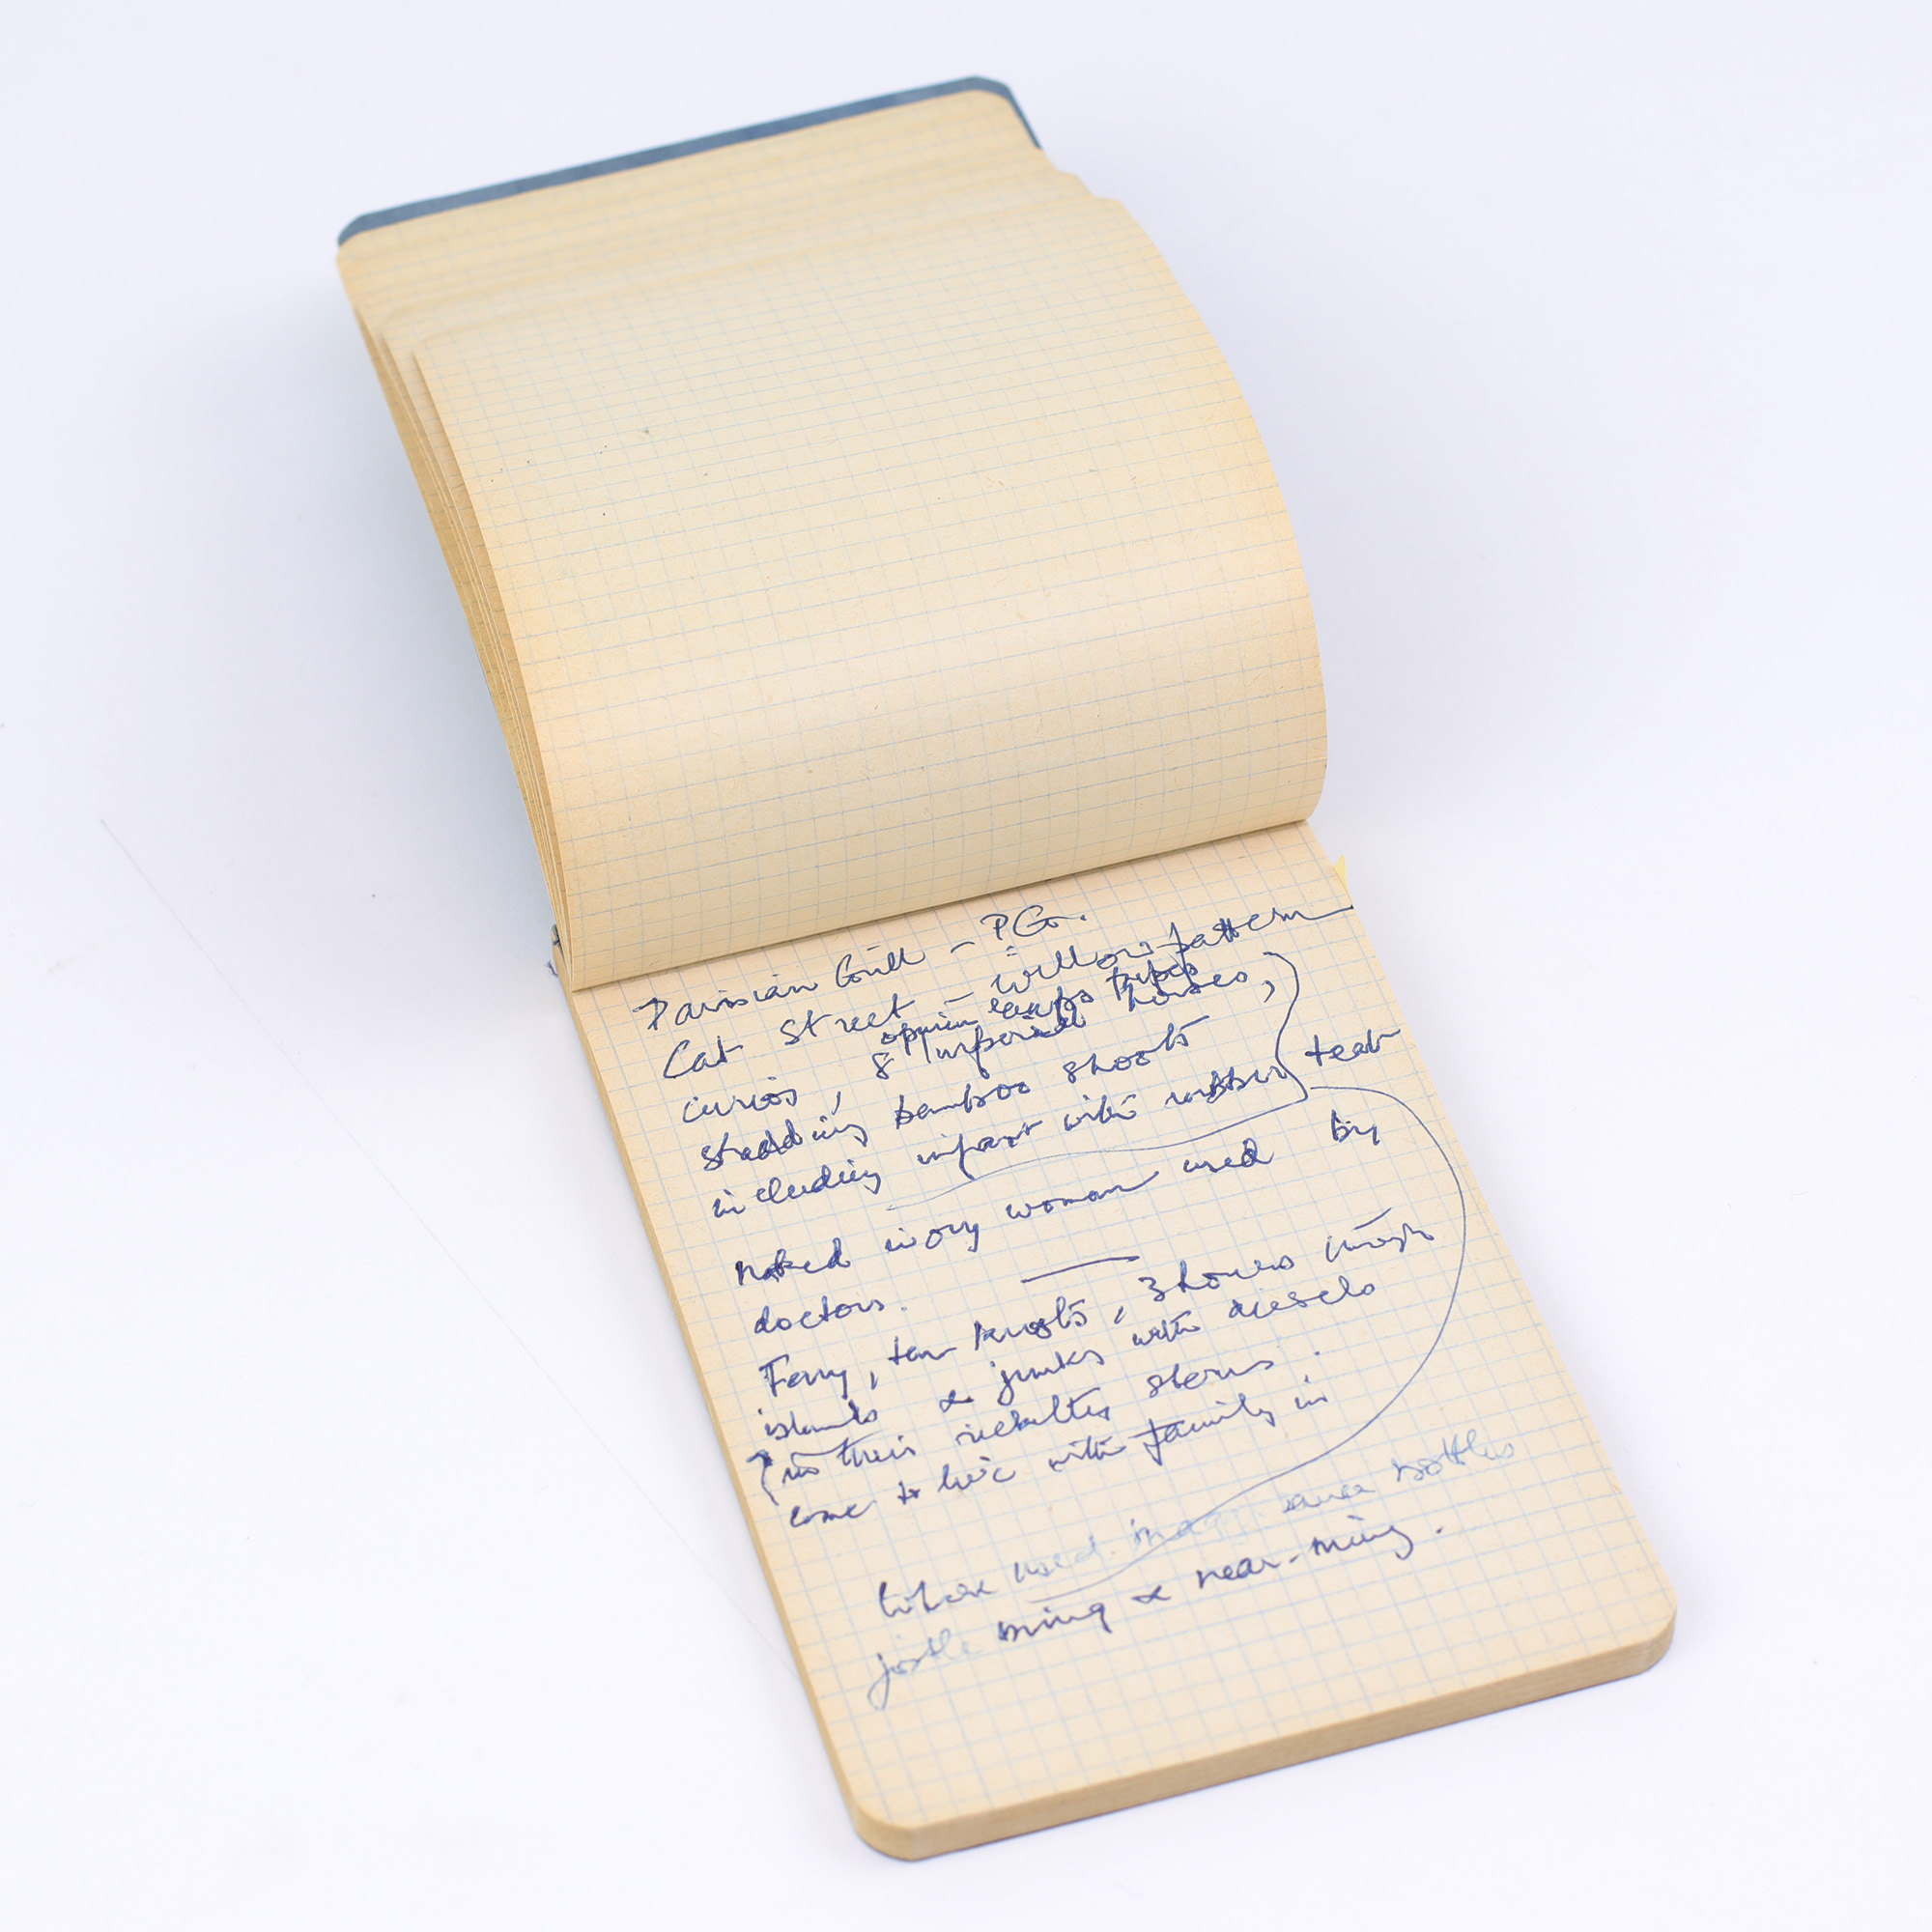 Parisian Grill – PG.
Cat Street – Willow pattern
opium pipes
curios, 8 Imperial horses,
bamboo shoots
including infant with rubber teat
Naked ivory woman used by
doctors.
Ferry, ten knots, 3 hours through
islands & junks with diesels
in their sterns.
come to live with family in
where used sauce bottles
jostle ming & near-ming.